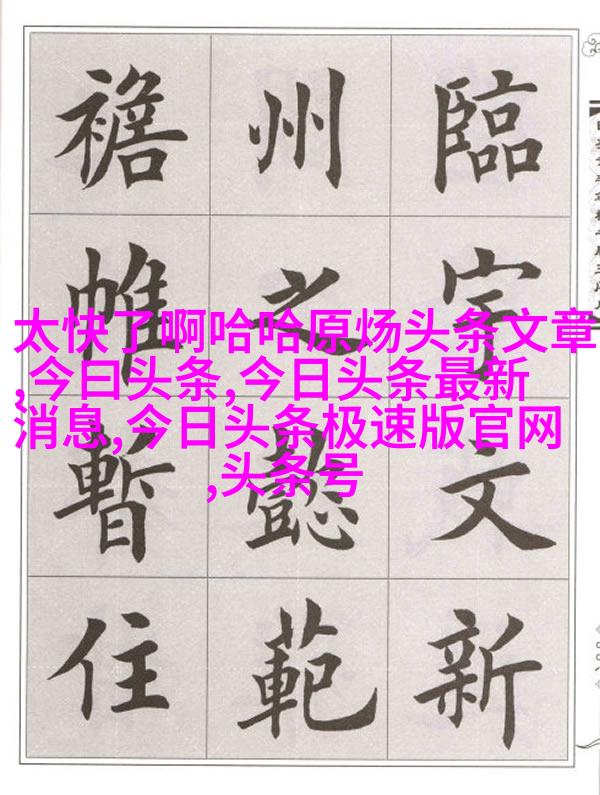 臨宇文新
州之懿範
襜帷暫住
太快了啊哈哈原炀头条文章
,今曰头条,今日头条最新
消息,今日头条极速版官网
,头条号